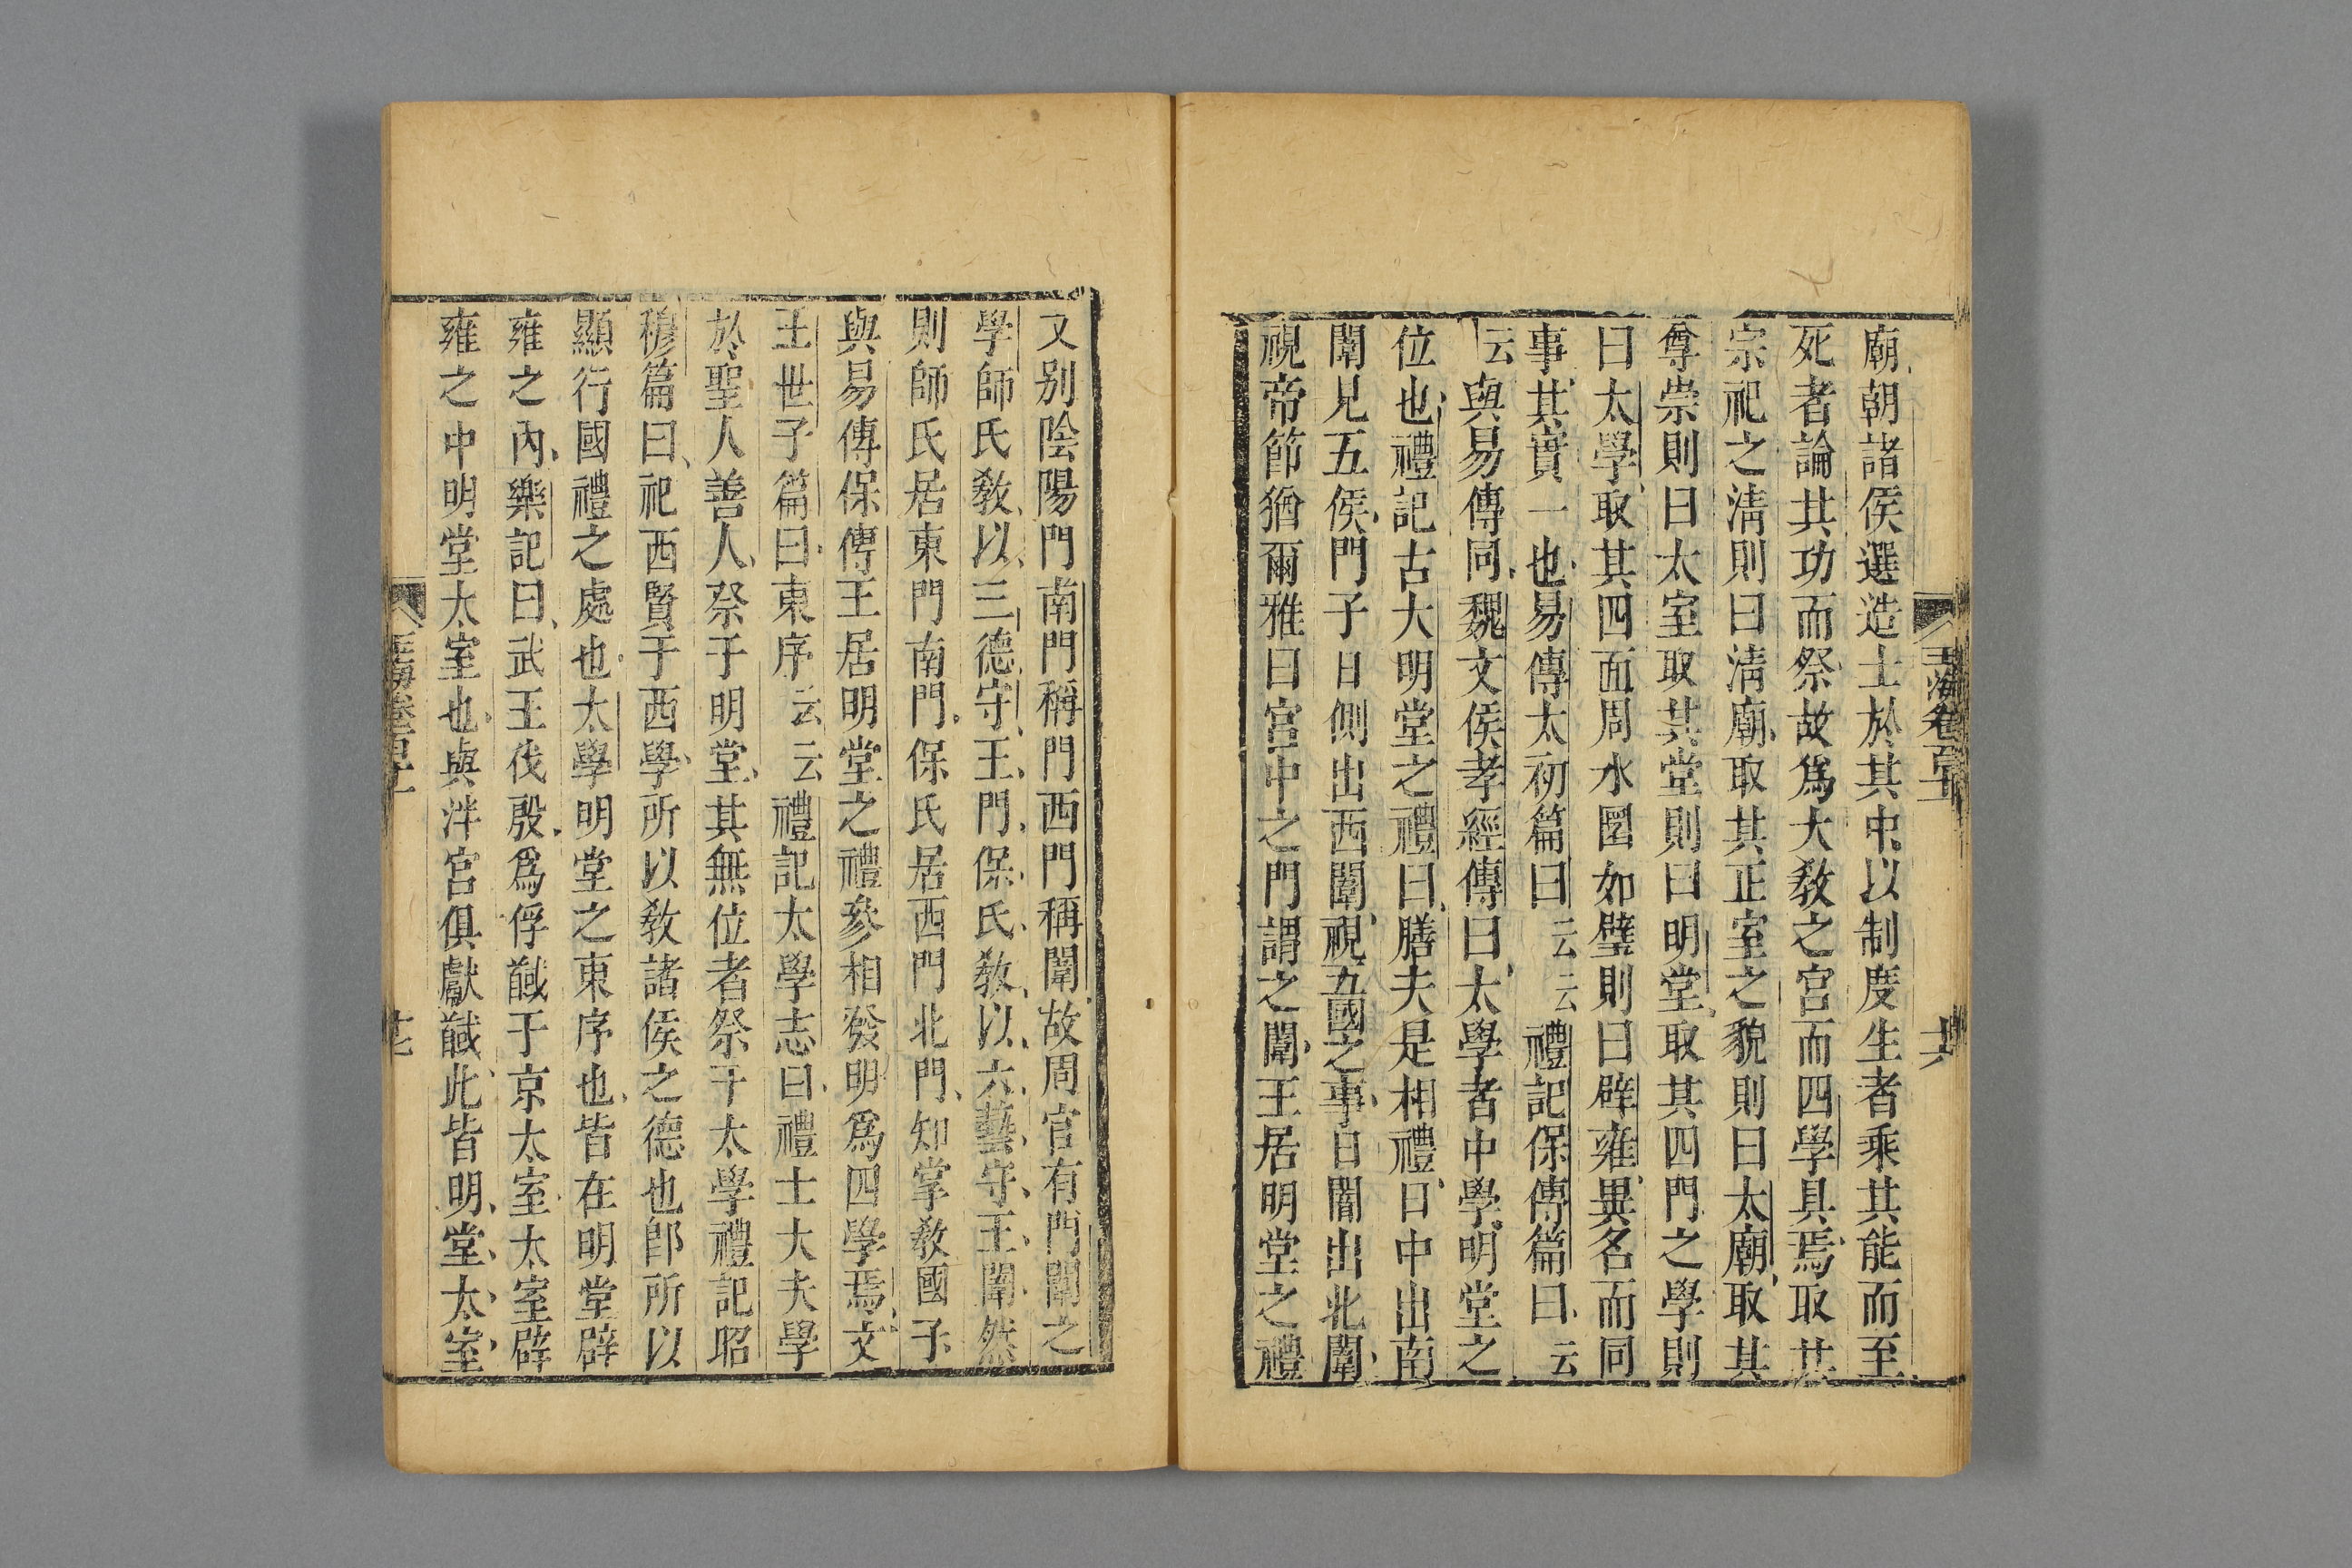 廟朝諸侯選造士於其中以制度生者乘其能而至
死者論其功而祭故爲大敎之宮而四學具焉取其
宗祀之淸則曰淸廟取其正室之貌則曰太廟取其
尊崇則曰太室取其堂則曰明堂取其四門之學則
曰太學取其四面周水圜如璧則曰辟雍異名而同
事其實一也易傳太初篇曰云云禮記保傳篇曰云
云與易傳同魏文侯孝經傳曰太學者中學明堂之
位也禮記古大明堂之禮曰膳夫是相禮日中出南
闈見五侯門子日側出西闈視五國之事日闇出北闈
視帝節猶爾雅曰宮中之門謂之闈王居明堂之禮
又別陰陽門南門稱門西門稱闈故周官有門闈之
學師氏敎以三德守王門保氏敎以六藝守王闈然
則師氏居東門南門保氏居西門北門知掌敎國子
與易傳保傳王居明堂之禮參相發明爲四學焉文
王世子篇曰東序云云禮記太學志曰禮士大夫學
於聖人善人祭于明堂其無位者祭于太學禮記昭
穆篇曰祀西賢于西學所以敎諸侯之德也卽所以
顯行國禮之處也太學明堂之東序也皆在明堂辟
雍之內樂記曰武王伐殷爲俘馘于京太室太室辟
雍之中明堂太室也與泮宮俱獻馘此皆明堂太室